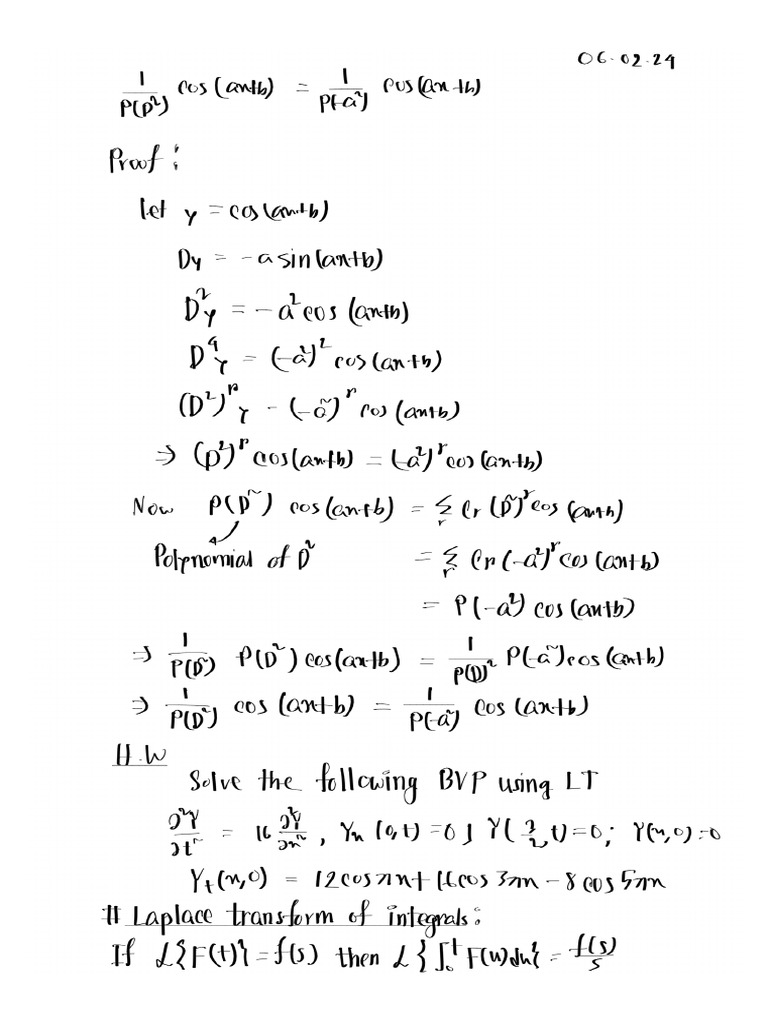 06.02.24
1/P(D²) cos(ax+b) = 1/P(-a²) cos(ax+b)
Proof:
Let y = cos(ax+b)
Dy = -a sin(ax+b)
D²y = -a² cos(ax+b)
D⁴y = (-a²)² cos(ax+b)
(D²)ʳy = (-a²)ʳ cos(ax+b)
⇒ (D²)ʳ cos(ax+b) = (-a²)ʳ cos(ax+b)
Now P(D²) cos(ax+b) = Σᵣ Cr (D²)ʳ cos(ax+b)
Polynomial of D² = Σᵣ Cr (-a²)ʳ cos(ax+b)
= P(-a²) cos(ax+b)
⇒ 1/P(D²) P(D²) cos(ax+b) = 1/P(D)² P(-a²) cos(ax+b)
⇒ 1/P(D²) cos(ax+b) = 1/P(-a²) cos(ax+b)
H.W
Solve the following BVP using LT
∂²Y/∂t² = 16 ∂²Y/∂x², Yx(0,t) = 0; Y(3/2, t) = 0; Y(x,0) = 0
Yt(x,0) = 12cosπx + 16cos3πx - 8cos5πx
# Laplace transform of integrals:
If L{F(t)} = f(s) then L{∫₀ᵗ F(u)du} = f(s)/s